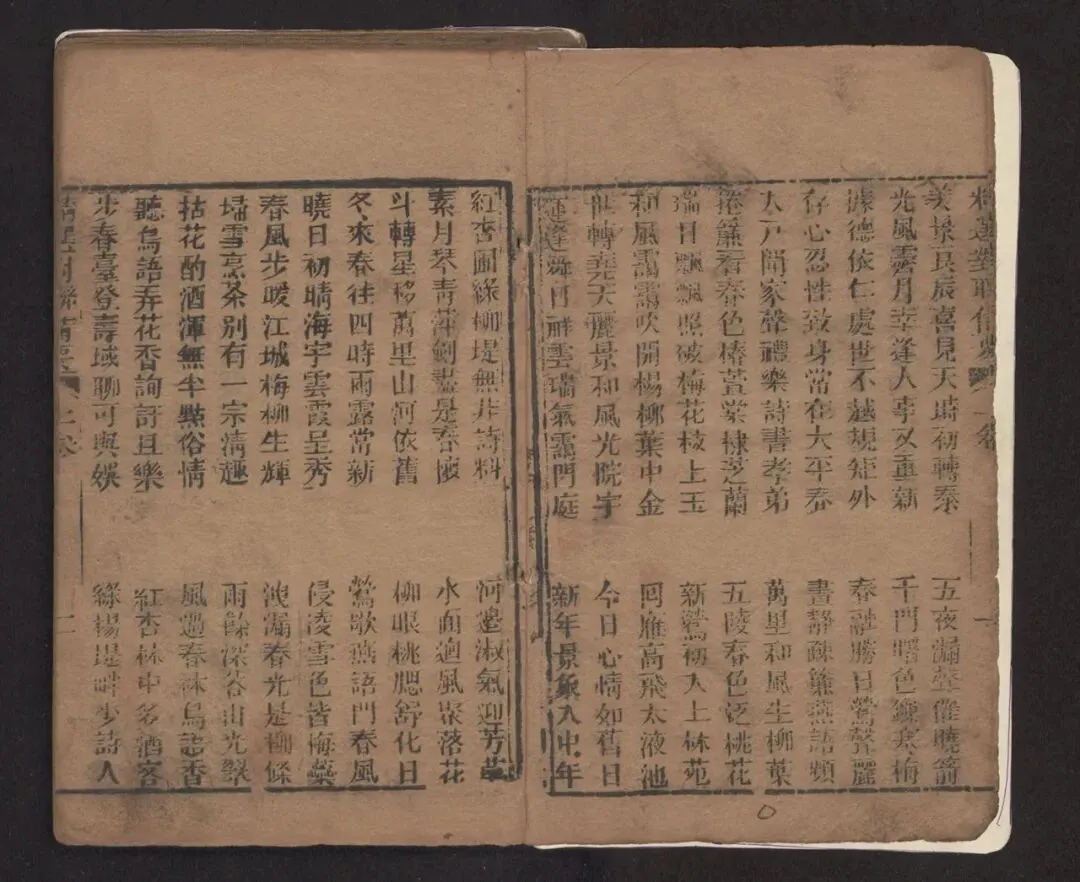 美景良辰喜見天時初轉泰
光風霽月幸逢人事又重新
據德依仁處世不越規矩外
存心忍性致身常在大平春
大戶開家聲禮樂詩書孝弟
捲簾看春色椿萱棠棣芝蘭
瑞日飄飄照破梅花枝上玉
和風靄靄吹開楊柳葉中金
世轉堯天麗景和風光院宇
運逢舜日祥雲瑞氣靄門庭
五夜漏聲催曉箭
千門曙色鎖寒梅
春融勝日鶯聲麗
晝靜疎簾燕語頻
萬里和風生柳葉
五陵春色泛桃花
新鶯初入上林苑
回雁高飛太液池
今日心情如舊日
新年景象入中年
紅杏圃綠柳堤無非詩料
素月琴青萍劍盡是春懷
斗轉星移萬里山河依舊
冬來春往四時雨露常新
曉日初晴海宇雲霞呈秀
春風步暖江城梅柳生輝
掃雪烹茶別有一宗清趣
拈花酌酒渾無半點俗情
聽鳥語弄花香詢訏且樂
步春臺登壽域聊可與娛
河邊淑氣迎芳草
水面迴風聚落花
柳眼桃腮舒化日
鶯歌燕語門春風
侵凌雪色皆梅蘂
洩漏春光是柳條
雨餘深谷山光翠
風過春林鳥語香
紅杏林中多酒客
綠楊堤畔步詩人